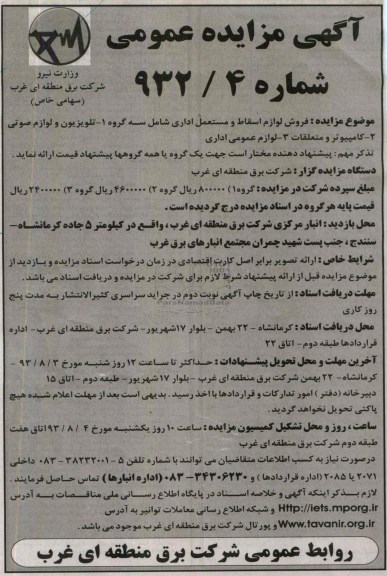 آگهی مزایده عمومی
شماره ۴ / ۹۳۲
وزارت نیرو
شرکت برق منطقه ای غرب
(سهامی خاص)
موضوع مزایده : فروش لوازم اسقاط و مستعمل اداری شامل سه گروه ۱-تلویزیون و لوازم صوتی
۲-کامپیوتر و متعلقات ۳-لوازم عمومی اداری
تذکر مهم : پیشنهاد دهنده مختار است جهت یک گروه یا همه گروهها پیشنهاد قیمت ارائه نماید .
دستگاه مزایده گزار : شرکت برق منطقه ای غرب
مبلغ سپرده شرکت در مزایده : گروه۱) ۸۰۰۰۰۰ ریال گروه ۲) ۴۶۰۰۰۰۰ ریال گروه ۳) ۲۴۰۰۰۰۰ ریال
قیمت پایه هر گروه در اسناد مزایده درج گردیده است .
محل بازدید : انبار مرکزی شرکت برق منطقه ای غرب ، واقع در کیلومتر ۵ جاده کرمانشاه-
سنندج ، جنب پست شهید چمران مجتمع انبارهای برق غرب
شرایط خاص : ارائه تصویر برابر اصل کارت اقتصادی در زمان درخواست اسناد مزایده و بازدید از
موضوع مزایده قبل از ارائه پیشنهاد شرط لازم برای شرکت در مزایده و دریافت اسناد می باشد .
مهلت دریافت اسناد : از تاریخ چاپ آگهی نوبت دوم در جراید سراسری کثیرالانتشار به مدت پنج
روز کاری
محل دریافت اسناد : کرمانشاه - ۲۲ بهمن - بلوار ۱۷شهریور- شرکت برق منطقه ای غرب- اداره
قراردادها طبقه دوم- اتاق ۲۲
آخرین مهلت و محل تحویل پیشنهادات : حداکثر تا ساعت ۱۲ روز شنبه مورخ ۳ / ۸ / ۹۳ -
کرمانشاه- ۲۲ بهمن شرکت برق منطقه ای غرب - بلوار ۱۷شهریور- طبقه دوم -اتاق ۱۵
دبیرخانه (دفتر) امور تدارکات و قراردادها با اخذ رسید . بدیهی است بعد از مهلت اعلام شده هیچ
پاکتی تحویل نخواهد گردید .
ساعت ، روز و محل تشکیل کمیسیون مزایده : ساعت ۱۰ روز یکشنبه مورخ ۴ / ۸ / ۹۳ اتاق هفت
طبقه دوم شرکت برق منطقه ای غرب
درصورت نیاز به کسب اطلاعات متقاضیان می توانند با شماره تلفن ۵ - ۳۸۲۳۲۰۰۱-۰۸۳ داخلی
۲۰۷۱ یا ۲۰۸۵ (اداره قراردادها ) و ۳۴۳۰۶۲۳۰-۰۸۳ (اداره انبارها ) تماس حاصل فرمایند .
لازم بذکر اینکه آگهی و خلاصه اسناد در پایگاه اطلاع رسانی ملی مناقصات به آدرس
Http://iets.mporg.ir و شبکه اطلاع رسانی معاملات توانیر به آدرس
www.tavanir.org.ir و پورتال شرکت برق منطقه ای غرب موجود می باشد .
روابط عمومی شرکت برق منطقه ای غرب